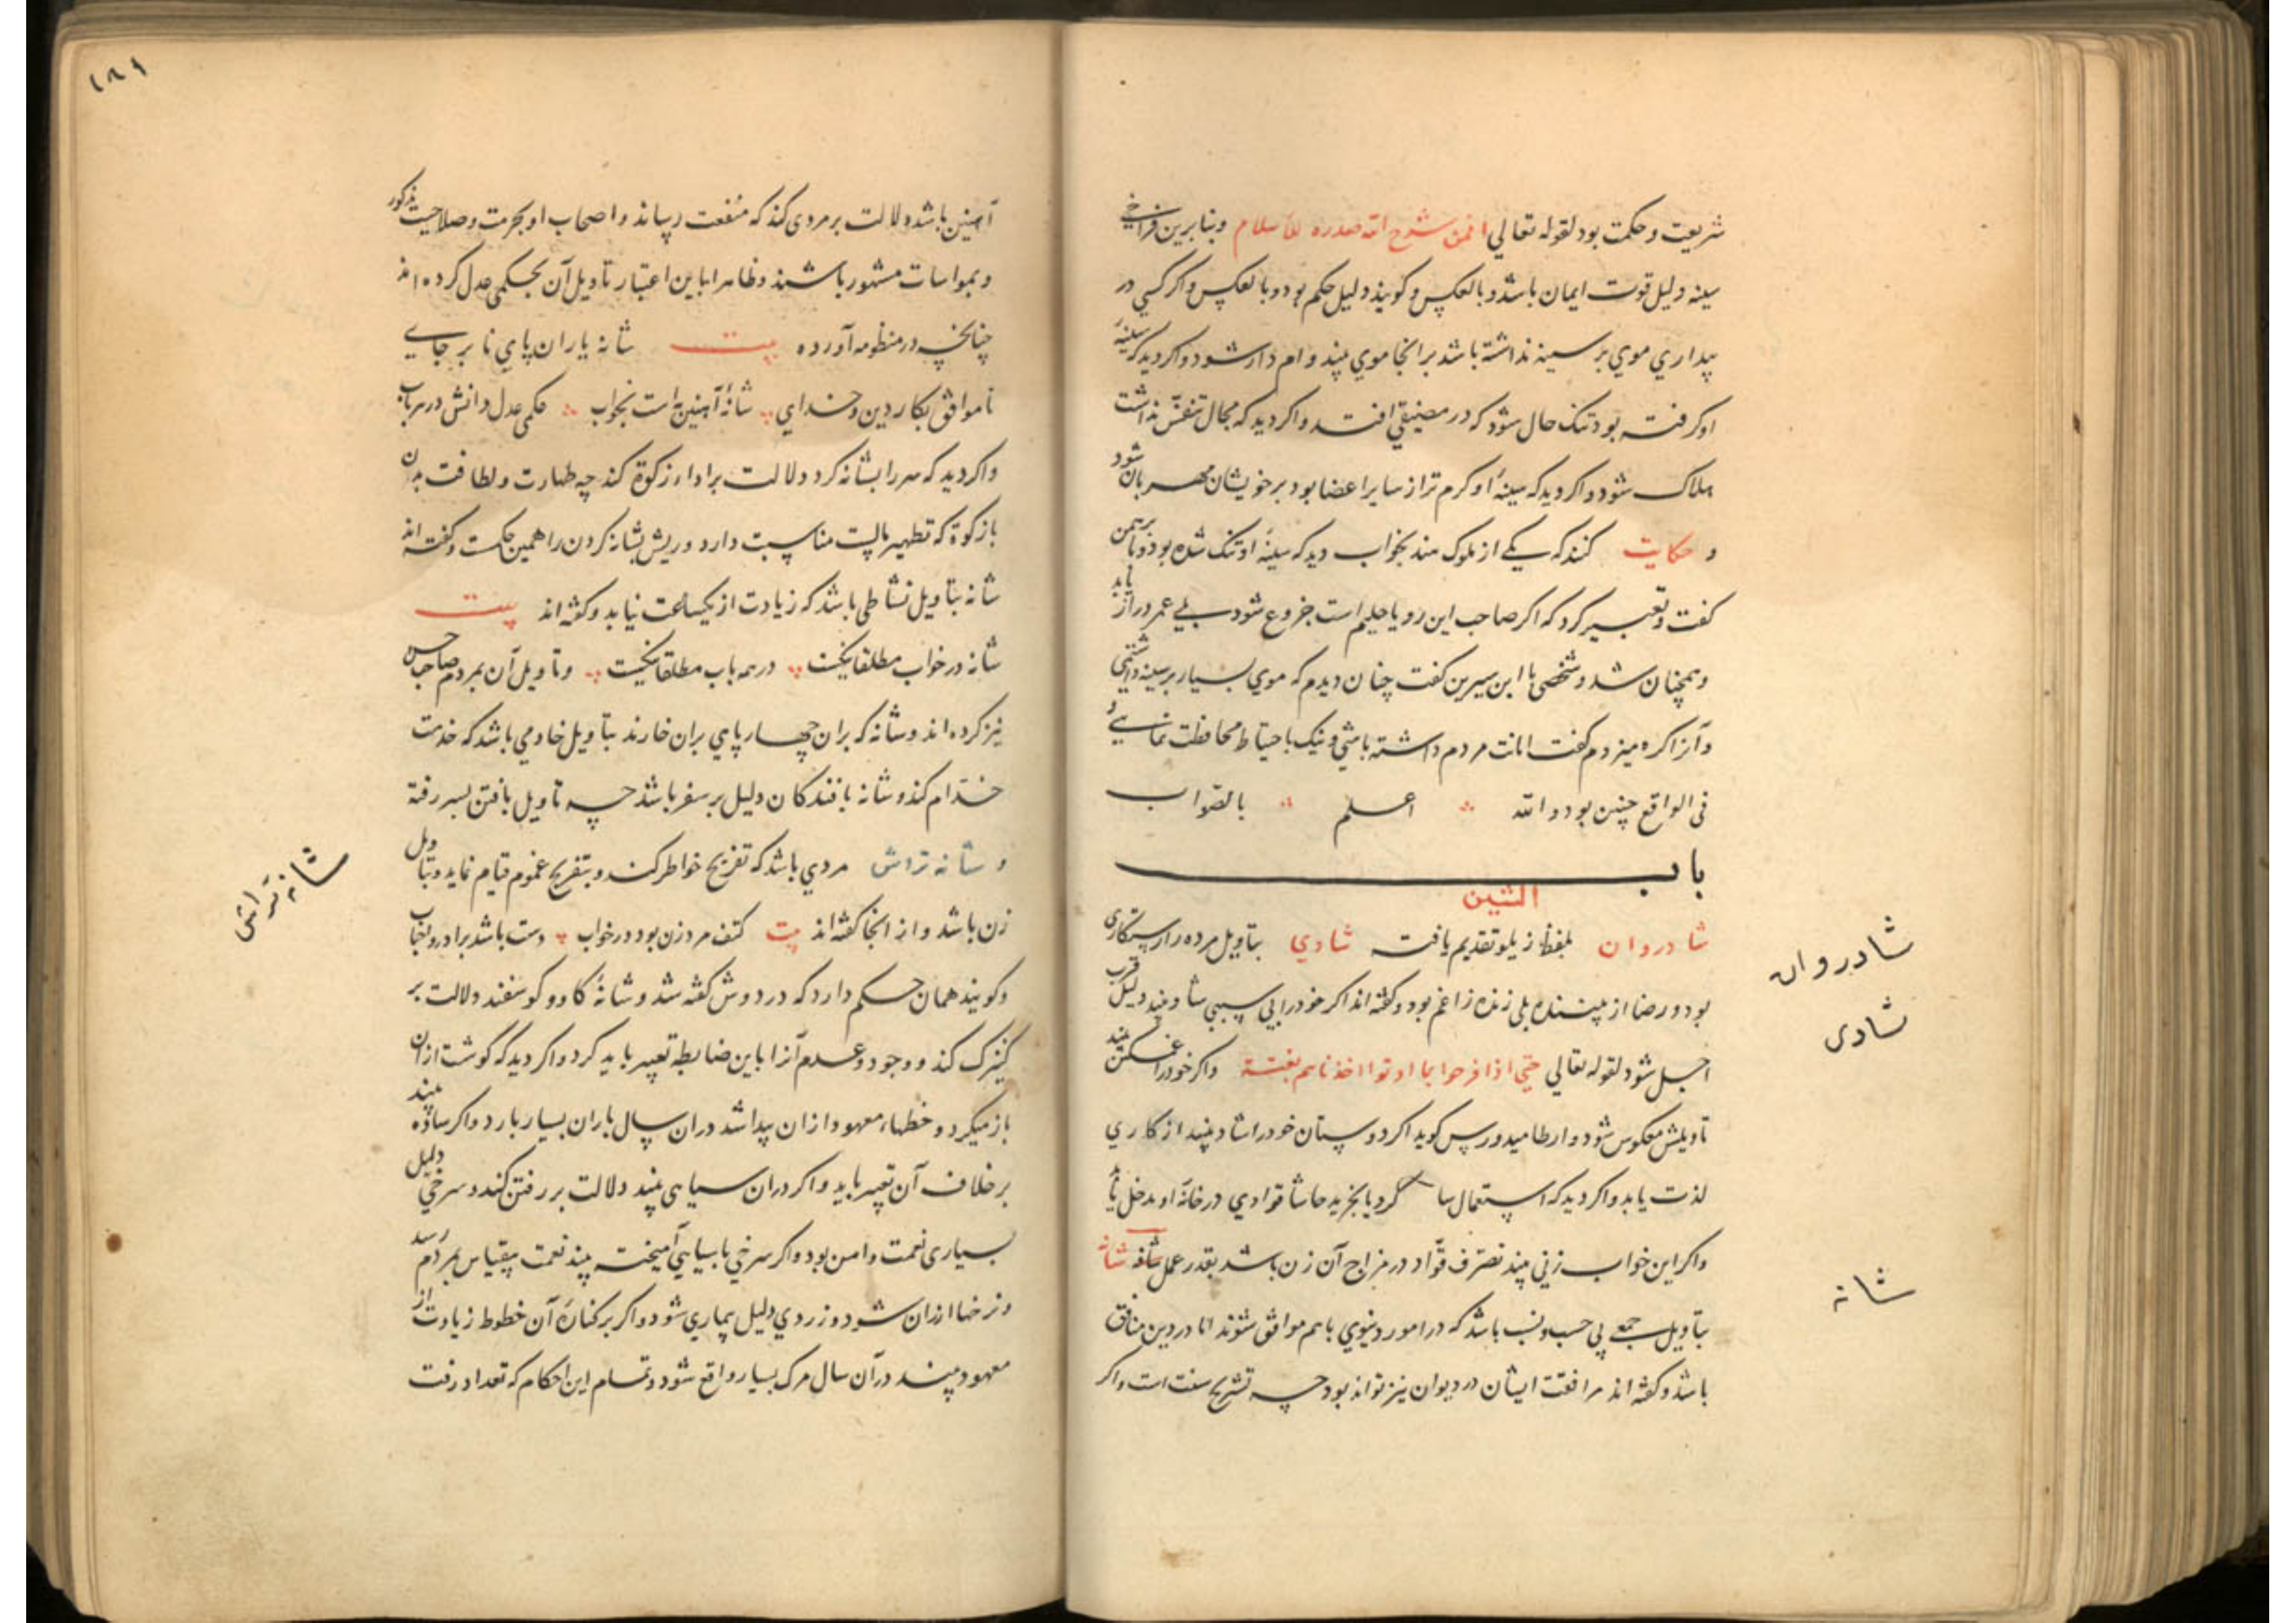 شریعت و حکمت بود لقوله تعالي افمن شرح الله صدره للاسلام وبنابرین فراخی
سینه دلیل قوت ایمان باشد و بالعکس و کویند دلیل حکم بود و بالعکس و اکر کسي در
بیداري موي بر سینه نداشته باشد برانجا موي بیند وام دار شود و اکر دید که سینهٔ
او کرفته بود تنک حال شود که در مضیقي افتد و اکر دید که مجال تنفس نداشت
هلاک شود و اکر دید که سینهٔ او کرم تر از سایر اعضا بود بر خویشان مهربان شود
و حکایت کنند که یکے از ملوک هند بخواب دید که سینهٔ او تنک شده بود و با برهمن
کفت و تعبیر کرد که اکر صاحب این رویا حلیم است جزوع شود بلے عمر دراز یابد
و همچنان شد و شخصی با ابن سیرین کفت چنان دیدم که موي بسیار بر سینه داشتمي
و آنرا کره میزدم کفت امانت مردم داشته باشي و نیک باحتیاط محافظت نمایے و
فی الواقع چنین بود والله اعلم بالصواب
باب
الشین
شادروان بلفظ زیلو تقدیم یافت شادي بتاویل مرده را رستکاری
بود و رضا از بیننده بلی زنده را غم بود و کفته اند اکر خود را بی سببی شاد بیند دلیل قرب
اجل شود لقوله تعالي حتي اذا فرحوا بما اوتوا اخذناهم بغتة و اکر خود را غمکین بیند
تاویلش معکوس شود و ارطامیدورس کوید اکر دوستان خود را شاد بیند از کاري
لذت یابد و اکر دید که استعمال کرد یا بخرید حاشا قوادي در خانهٔ او مدخل یابد
و اکر این خواب زنی بیند تصرف قوّاد در مزاج آن زن باشد بقدر عمل شانه شانه
بتاویل جمعے بی حسب و نسب باشد که در امور دنیوي باهم موافق شوند اما در دین منافق
باشند و کفته اند مرافقت ایشان در دیوان نیز تواند بود چه تشریح سنت است و اکر
شادروان
شادی
شانه
۱۸۹
آهنین باشد دلالت بر مردی کند که منفعت رساند و اصحاب او بحرمت و صلاحیت مذکور
و بمواسات مشهور باشند و ظاهرا باین اعتبار تاویل آن بحکمی عدل کرده اند
چنانچه در منظومه آورده بیت شانه یاران پاي نا بر جاے
ناموافق بکار دین و خداي شانهٔ آهنین است بخواب حکمی عدل دانش در هر باب
و اکر دید که سر را بشانه کرد دلالت بر اداء زکوة کند چه طهارت و لطافت بدن
با زکوة که تطهیر مالست مناسبت دارد و ریش بشانه کردن را همین حکمست و کفته اند
شانه بتاویل نشاطی باشد که زیادت از یکساعت نیاید و کفته اند بیت
شانه در خواب مطلقا نیکست در همه باب مطلقا نیکست و تاویل آن بمردم صاحب
نیز کرده اند و شانه که بران چهارپاي بران خارند بتاویل خادمي باشد که خدمت
خدّام کند و شانه بافندکان دلیل بر سفر باشد چه تاویل بافتن بسفر رفته
و شانه تراش مردي باشد که تفریح خاطر کند و بتفریج غموم قیام نماید و بتاویل
زن باشد و از انجا کفته اند بیت کتف مرد زن بود در خواب دست باشد برادر و
و کویند همان حکم دارد که در دوش کفته شد و شانهٔ کاو و کوسفند دلالت بر
کنیزک کند و وجود و عدم آنرا باین ضابطه تعبیر باید کرد و اکر دید که کوشت از ان
باز میکرد و خطهاء معهود از ان پیدا شد دران سال باران بسیار بارد و اکر ساده بیند
بر خلاف آن تعبیر باید و اکر دران سیاهی بیند دلالت بر رفتن کند و سرخي دلیل
بسیاری نعمت و امن بود و اکر سرخي با سیاهي آمیخته بیند نعمت بیقیاس بمردم رسد
و نرخها ارزان شود و زردي دلیل بیماري شود و اکر بر کنارهٔ آن خطوط زیادت از
معهود بیند درآن سال مرک بسیار واقع شود و تمام این احکام که تعداد رفت
شانه تراش